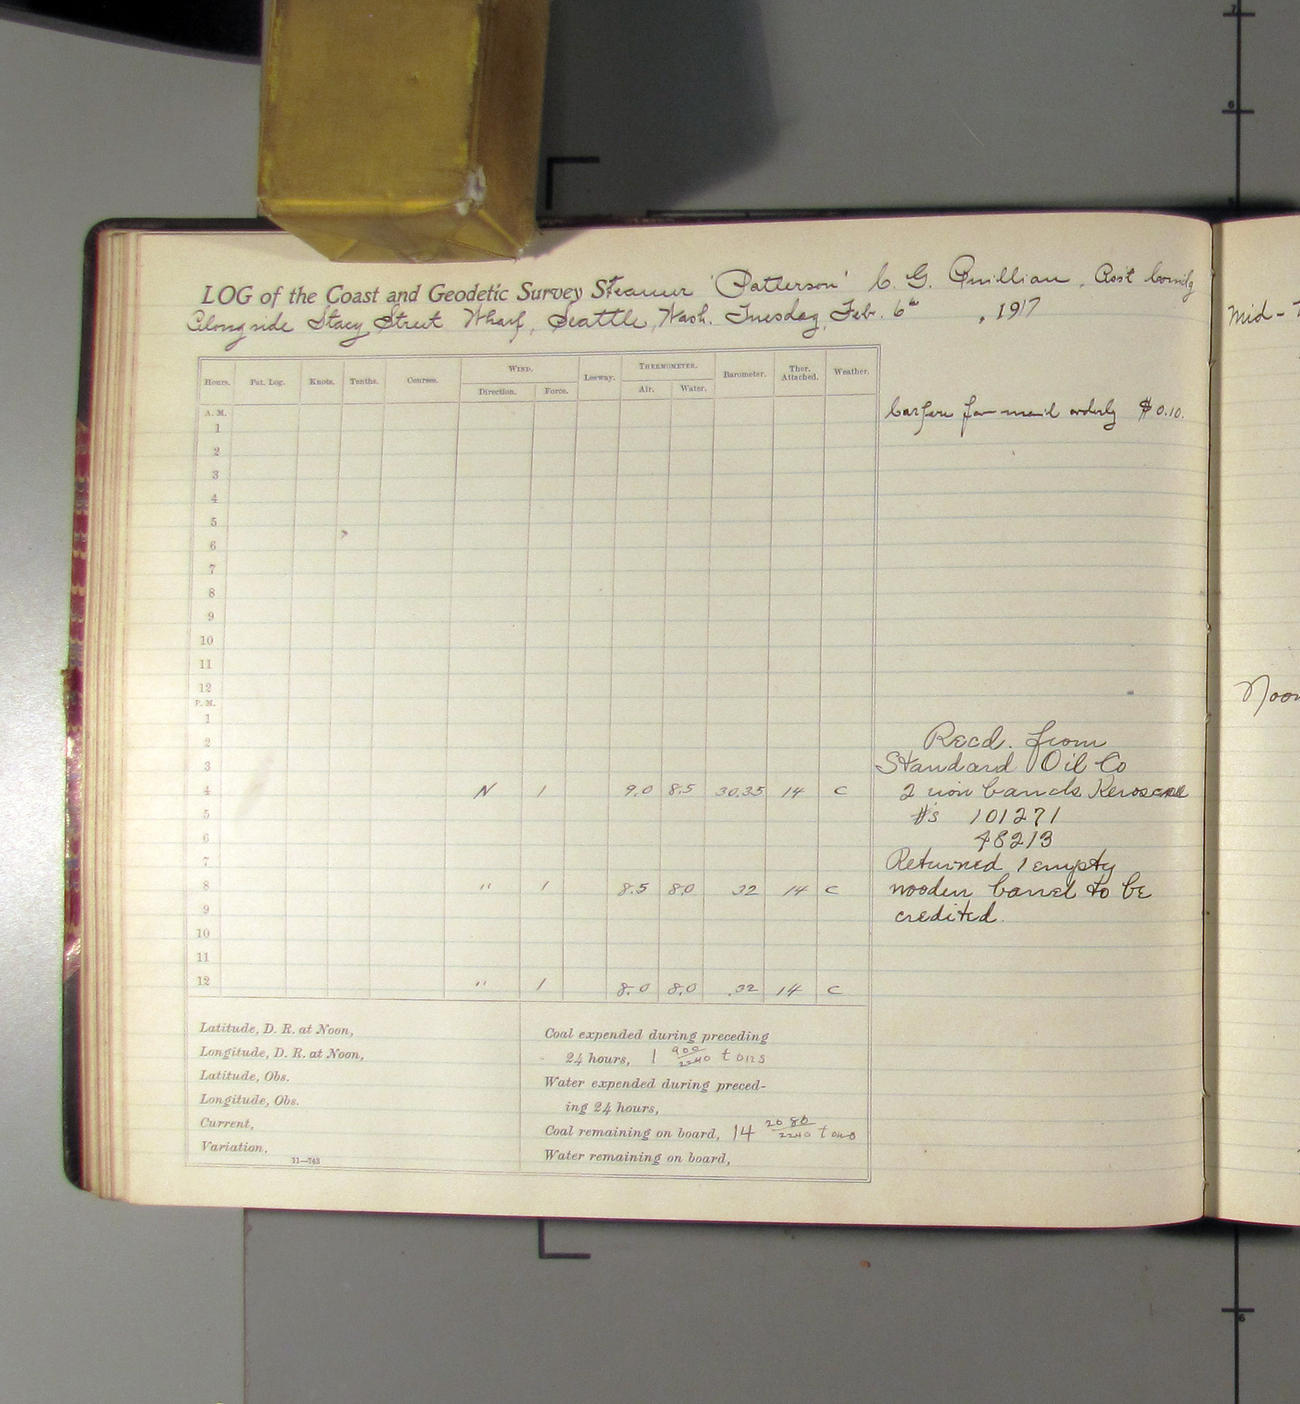 LOG of the Coast and Geodetic Survey Steamer 'Patterson' C. G. Quillian, Asst Comdg
Alongside Stacy Street Wharf, Seattle, Wash. Tuesday, Feb. 6th, 1917
Hours. Pat. Log. Knots. Tenths. Courses. WIND. Leeway. THERMOMETER. Barometer. Ther. Attached. Weather.
Direction. Force. Air. Water.
A. M.
Carfare for mail orderly $0.10.
1
2
3
4
5
6
7
8
9
10
11
12
P. M.
1
2 Recd. from
3 Standard Oil Co
4 N 1 9.0 8.5 30.35 14 C 2 iron barrels Kerosene
5 #s 101271
6 48213
7 Returned 1 empty
8 " 1 8.5 8.0 32 14 C wooden barrel to be
9 credited.
10
11
12 " 1 8.0 8.0 .32 14 C
Latitude, D. R. at Noon,
Longitude, D. R. at Noon,
Latitude, Obs.
Longitude, Obs.
Current,
Variation,
11—743
Coal expended during preceding
24 hours, 1 900/2240 tons
Water expended during preced-
ing 24 hours,
Coal remaining on board, 14 2080/2240 tons
Water remaining on board,
Mid-
Noon